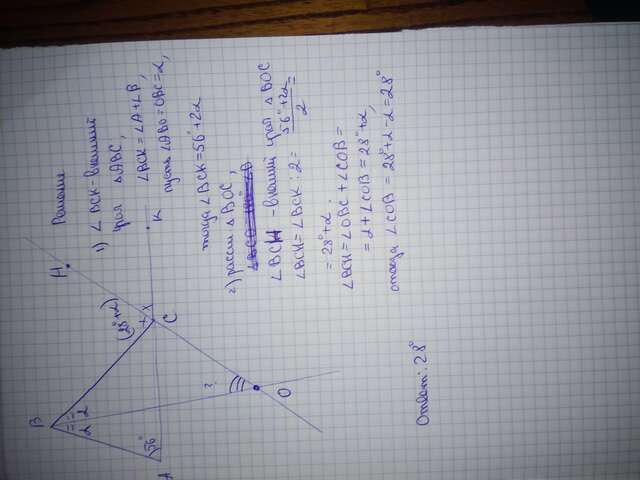 Решение
1) ∠BCK-внешний
угол △ABC,
∠BCK=∠A+∠B,
пусть ∠ABO=OBC=α,
тогда ∠BCK=56°+2α
2) рассм △BOC,
∠BCH -внешний угол △BOC
∠BCH=∠BCK:2= 56°+2α/2 =
=28°+α.
∠BCH=∠OBC+∠COB=
=α+∠COB=28°+α,
отсюда ∠COB=28°+α-α=28°
Ответ: 28°
H
K
(28°+α)
x
C
B
α α
56°
A
?
O